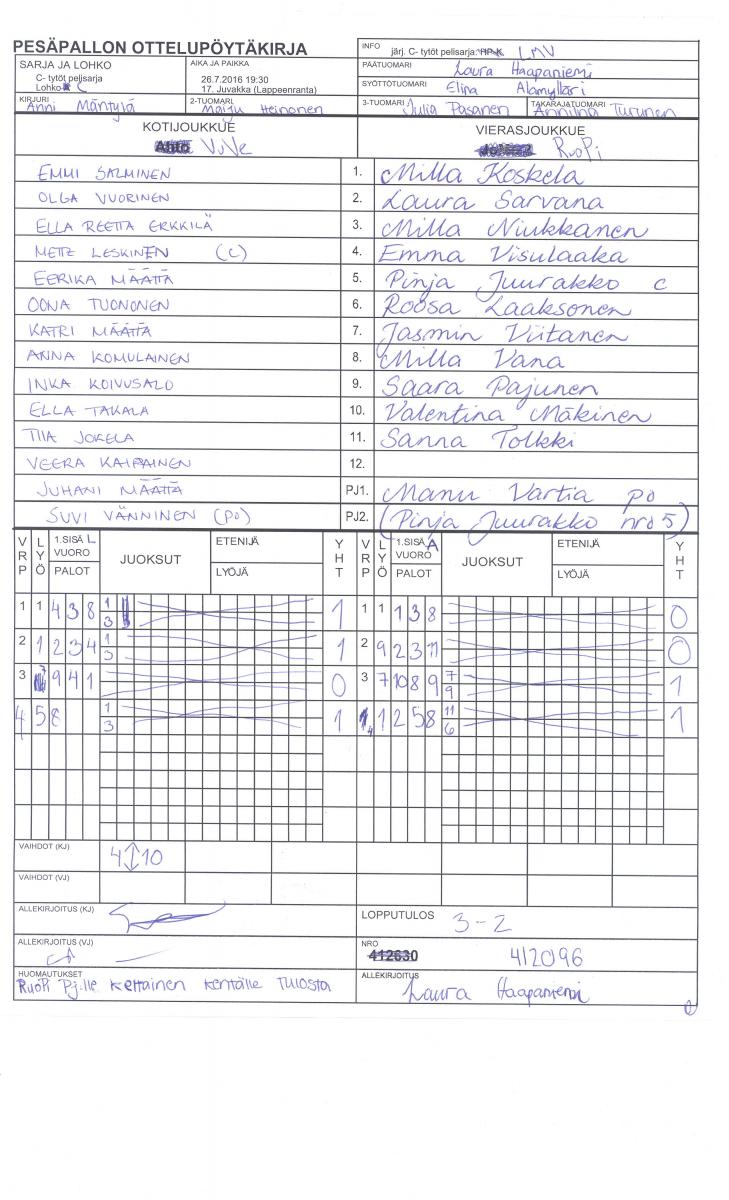 PESÄPALLON OTTELUPÖYTÄKIRJA
INFO järj. C- tytöt pelisarja: LMV
SARJA JA LOHKO
C- tytöt pelisarja
Lohko C
AIKA JA PAIKKA
26.7.2016 19:30
17. Juvakka (Lappeenranta)
PÄÄTUOMARI Laura Haapaniemi
SYÖTTÖTUOMARI Elina Alamylläri
KIRJURI Anni Mäntylä
2-TUOMARI Maiju Heinonen
3-TUOMARI Julia Pasanen
TAKARAJATUOMARI Anniina Turunen
KOTIJOUKKUE
ViVe
VIERASJOUKKUE
RuoPi
EMMI SALMINEN 1. Milla Koskela
OLGA VUORINEN 2. Laura Sarvana
ELLA REETTA ERKKILÄ 3. Milla Niukkanen
METE LESKINEN (C) 4. Emma Visulaaka
EERIKA MÄÄTTÄ 5. Pinja Juurakko c
OONA TUONONEN 6. Roosa Laaksonen
KATRI MÄÄTTÄ 7. Jasmin Viitanen
ANNA KOMULAINEN 8. Milla Vana
INKA KOIVUSALO 9. Saara Pajunen
ELLA TAKALA 10. Valentina Mäkinen
TIIA JOKELA 11. Sanna Tolkki
VEERA KAIPAINEN 12.
JUHANI MÄÄTTÄ PJ1. Manu Vartia po
SUVI VÄNNINEN (PO) PJ2. (Pinja Juurakko nro 5)
VRP LYÖ 1.SISÄ L VUORO PALOT JUOKSUT ETENIJÄ LYÖJÄ YHT VRP LYÖ 1.SISÄ A VUORO PALOT JUOKSUT ETENIJÄ LYÖJÄ YHT
1 1 4 3 8 1 3 1 1 1 1 3 8 0
2 1 2 3 4 1 3 1 2 9 2 3 11 0
3 9 4 1 0 3 7 10 8 9 7 9 1
4 5 8 1 3 1 4 1 2 5 8 11 6 1
VAIHDOT (KJ) 4 ↕ 10
VAIHDOT (VJ)
ALLEKIRJOITUS (KJ)
LOPPUTULOS 3-2
ALLEKIRJOITUS (VJ)
NRO 412630 412096
HUOMAUTUKSET
RuoPi Pj:lle keltainen kentälle tulosta
ALLEKIRJOITUS
Laura Haapaniemi